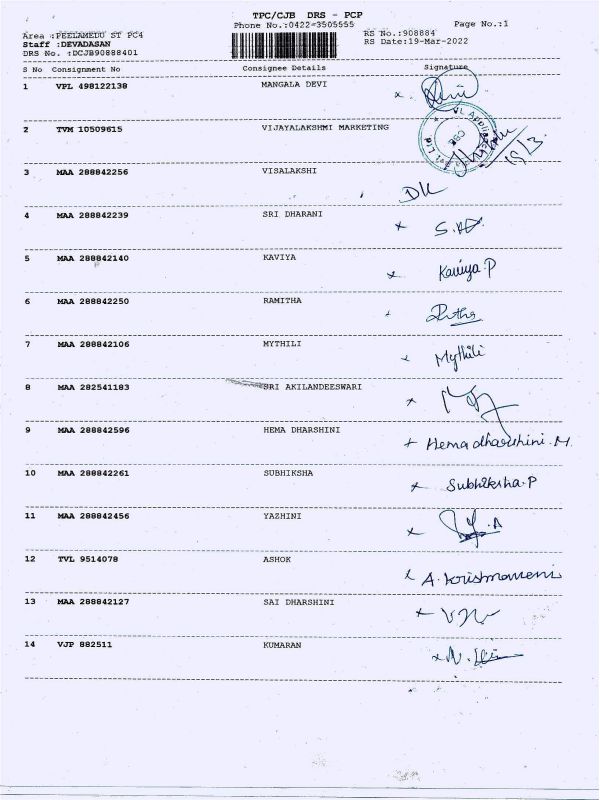 TPC/CJB DRS - PCP
Phone No.:0422-3505555 Page No.:1
Area :PEELAMEDU ST PC4 RS No.:908884
Staff :DEVADASAN RS Date:19-Mar-2022
DRS No. :DCJB90888401
S No Consignment No Consignee Details Signature
1 VPL 498122138 MANGALA DEVI x
2 TVM 10509615 VIJAYALAKSHMI MARKETING 19/3
3 MAA 288842256 VISALAKSHI
4 MAA 288842239 SRI DHARANI x
5 MAA 288842140 KAVIYA x Kaviya.P
6 MAA 288842250 RAMITHA
7 MAA 288842106 MYTHILI x Mythili
8 MAA 282541183 SRI AKILANDEESWARI x
9 MAA 288842596 HEMA DHARSHINI + Hema dharshini.M.
10 MAA 288842261 SUBHIKSHA x Subhiksha.P
11 MAA 288842456 YAZHINI x
12 TVL 9514078 ASHOK x A.krishnaveni
13 MAA 288842127 SAI DHARSHINI x
14 VJP 882511 KUMARAN x